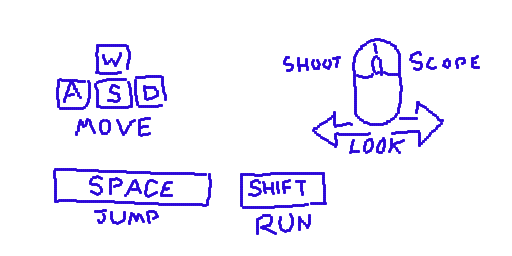 W
A S D
MOVE
SHOOT SCOPE
LOOK
SPACE
JUMP
SHIFT
RUN